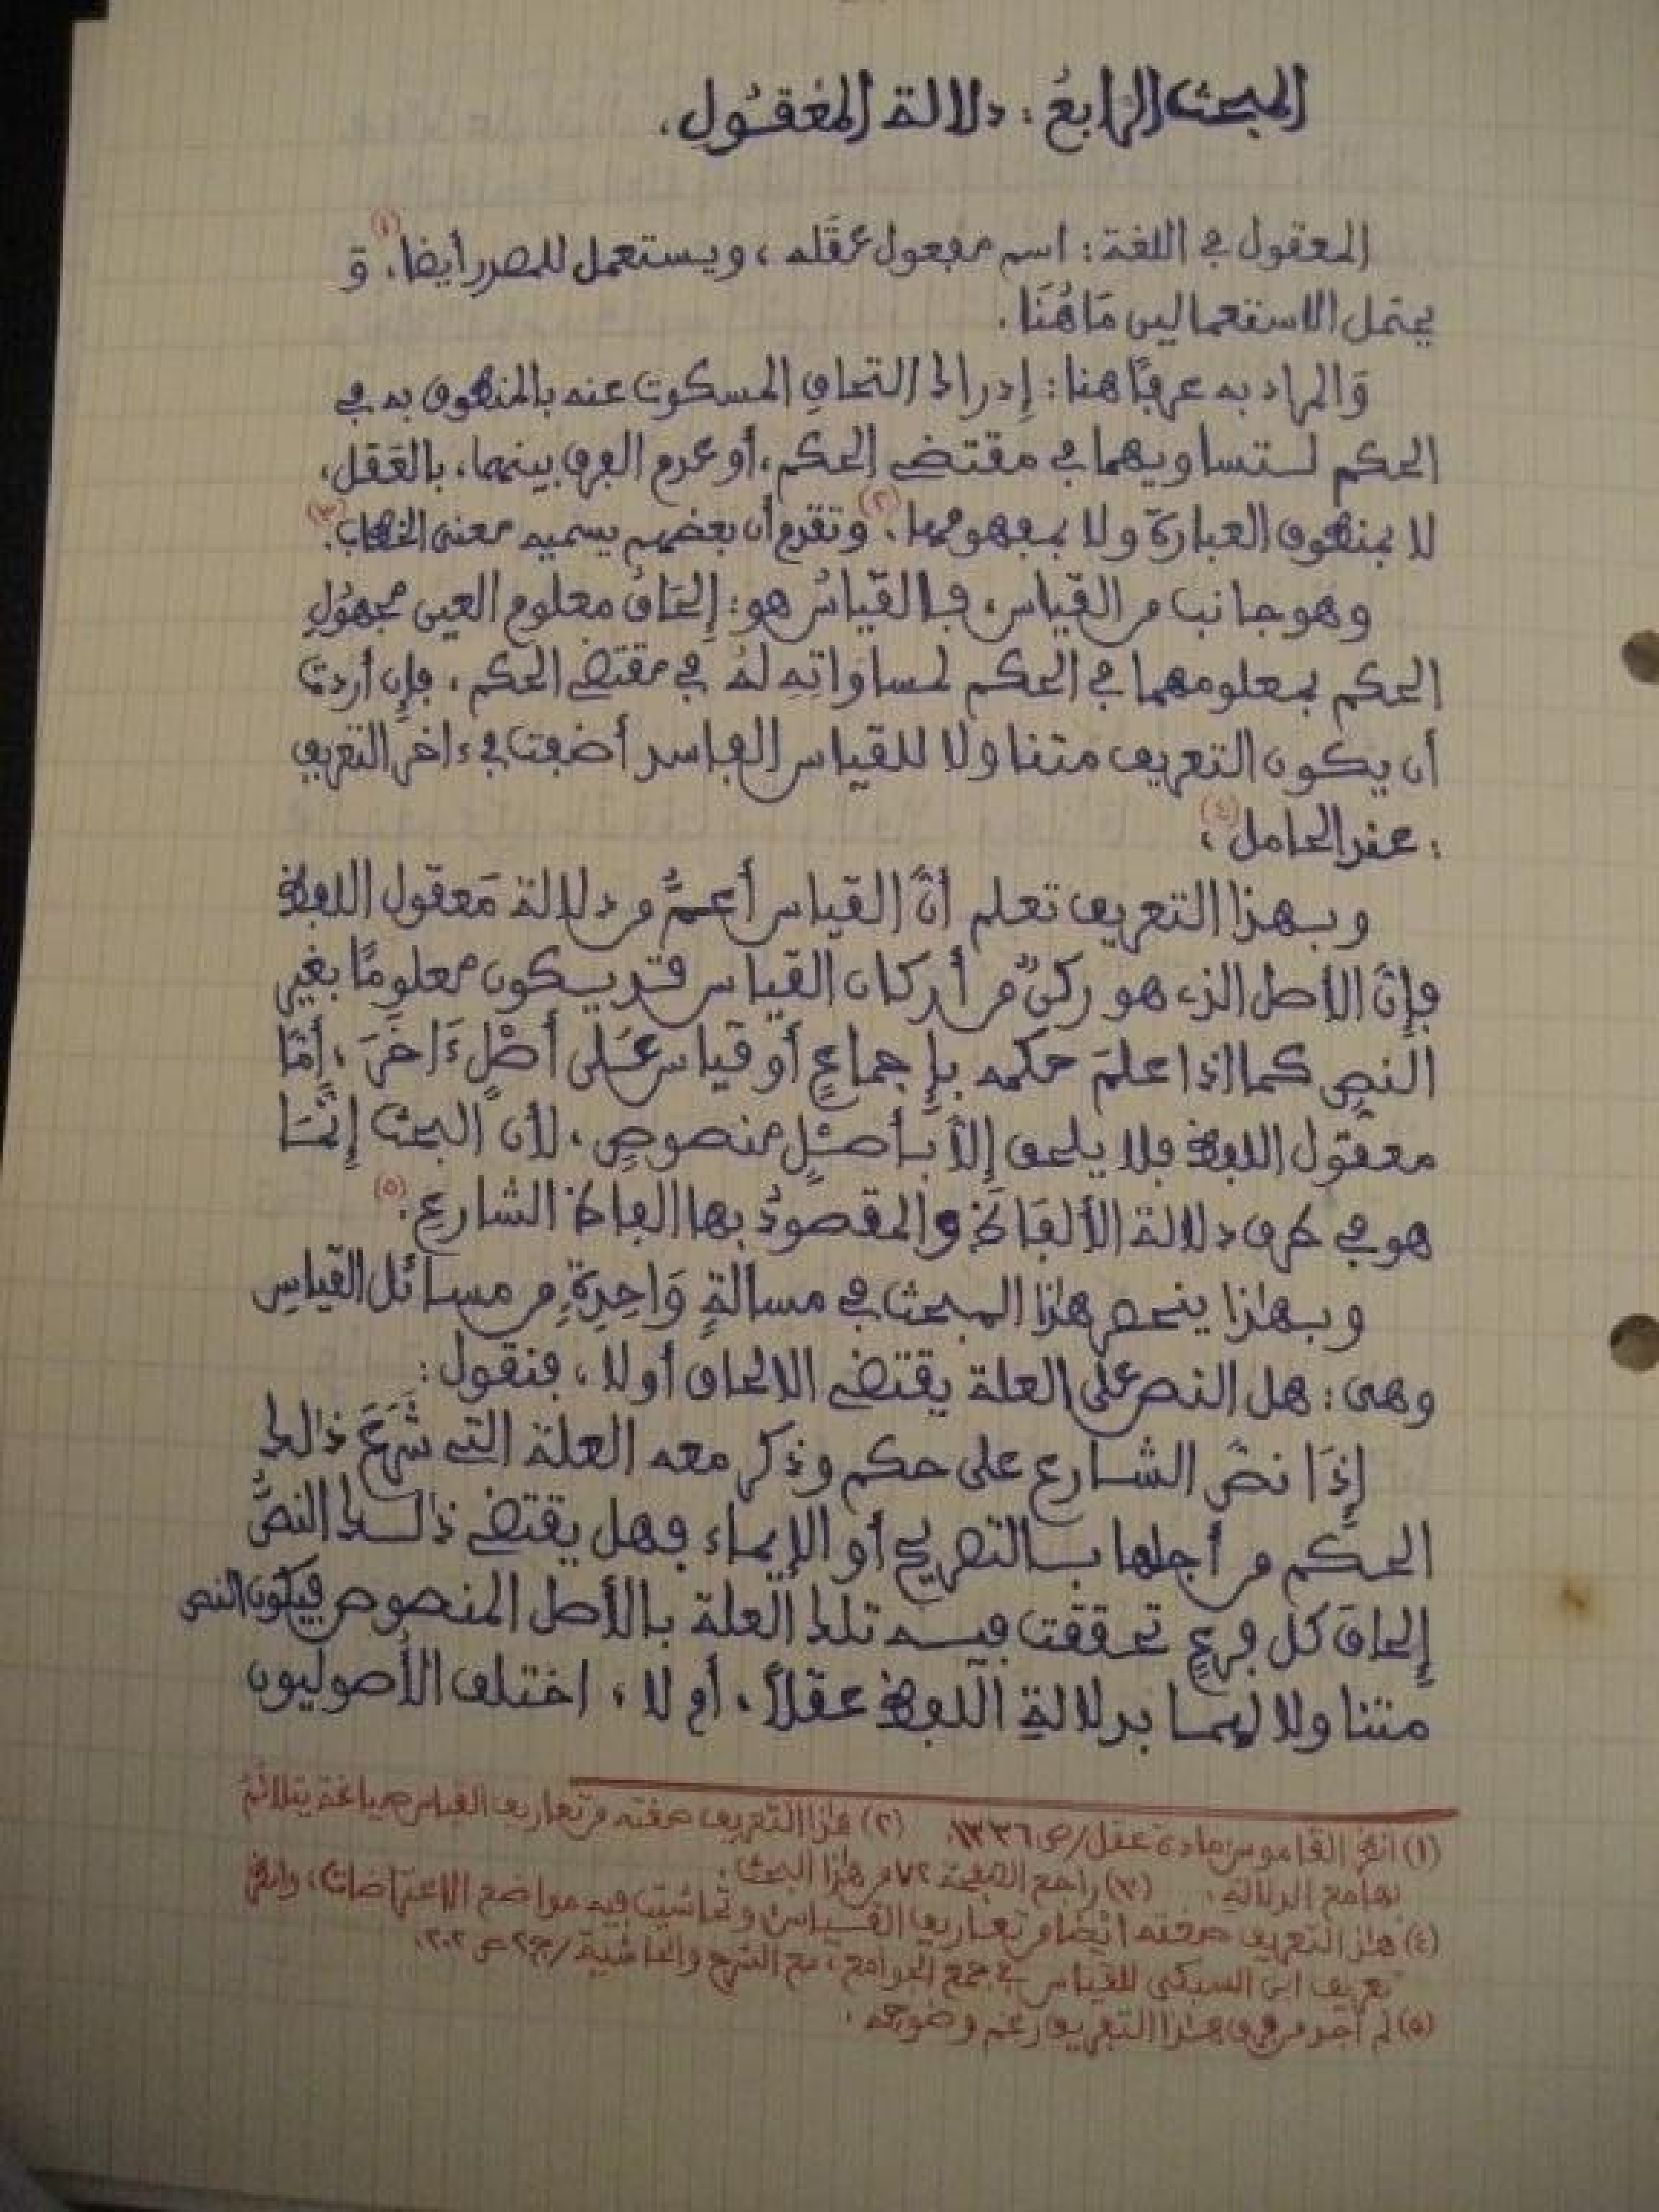 المبحث الرابعُ : دلالة المعْقُولِ.
المعقول في اللغة : اسم مفعول عقَله ، ويستعمل للمصدر أيضا (١)، وَ
يحتمل الاستعمالين مَاهُنَا .
وَالمراد به عرفًا هنا : إدراك التحاق المسكوت عنه بالمنطوق به في
الحكم لتساويهما في مقتضى الحكم ، أو عدم الفرق بينهما ، بالعَقل ،
لا بمنطوق العبارة ولا بمفهومها (٢). وتقدم أن بعضهم يسميه معنى الخطاب (٣).
وهو جانب من القياس ، فالقياسُ هو : إلحَاقُ معلوم العين مجهُولِ
الحكم بمعلومهما في الحكم لمساوَاتِهِ لَهُ في مقتضى الحكم ، فإن أردت
أن يكون التعريف متناولا للقياس الفاسد أضفت في ءاخر التعريف
: عند الحامل (٤)،
وبهذا التعريف تعلم أنَّ القياس أعمُّ من دلالة مَعقول اللفظ
فإنَّ الأصل الذي هو ركنٌ من أركان القياس قد يكون معلومًا بغير
النصِ كما إذا علمَ حكمه بإجماعٍ أو قياس عَلى أصْلٍ ءَاخَرَ ، أمَّا
معقول اللفظ فلا يلحق إلاَّ بأصْلٍ منصوصٍ ، لأن البحث إنَّمَا
هو في طرق دلالة الألفَاظِ والمقصودُ بها الفاظ الشارعِ (٥).
وبهاذا ينحصر هاذا المبحث في مسألةٍ وَاحِدَةٍ من مسائل القياسِ
وهى : هل النص على العلة يقتضى الالحاق أولا ، فنقول :
إذَا نصَّ الشارع على حكم وذكر معه العلة التي شَرَعَ ذالك
الحكم من أجلها بالتصريح أو الإيماء فهل يقتضى ذالك النصُّ
إلحاقَ كل فرعٍ تحققت فيه تلك العلة بالأصل المنصوص فيكون النص
متناولا لهما بدلالةِ اللفظ عقلاً ، أم لا ، اختلف الأصوليون
(١) انظر القاموس مادة عقل/ص١٣٣٦. (٢) هاذا التعريف صغته من تعاريف القياس صياغة يتلائمُ
بهامع الدلالة . (٣) راجع الصفحة ٧٢ من هاذا البحث .
(٤) هاذا التعريف صغته أيضا من تعاريف القياس وتحاشيت فيه مواضع الاعتراضات ، وانظر
تعريف ابن السبكي للقياس في جمع الجوامع ، مع الشرح والحاشية / ج٢ ص ٢٠٢.
(٥) لم أجد من فرق هذا التعريف رغم وضوحه .